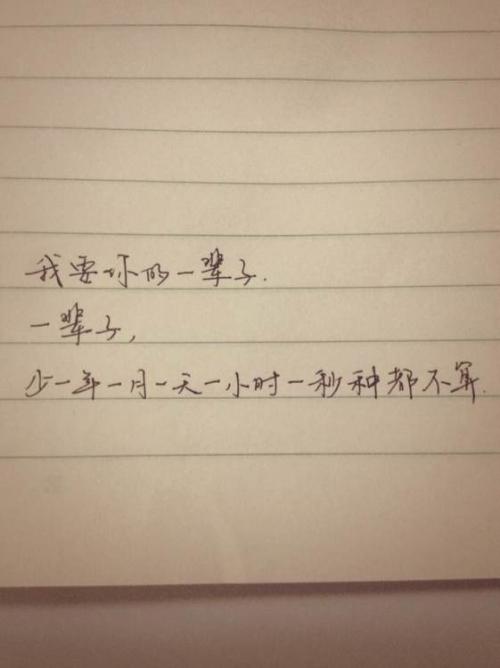 我要你的一辈子.
一辈子,
少一年一月一天一小时一秒种都不算.